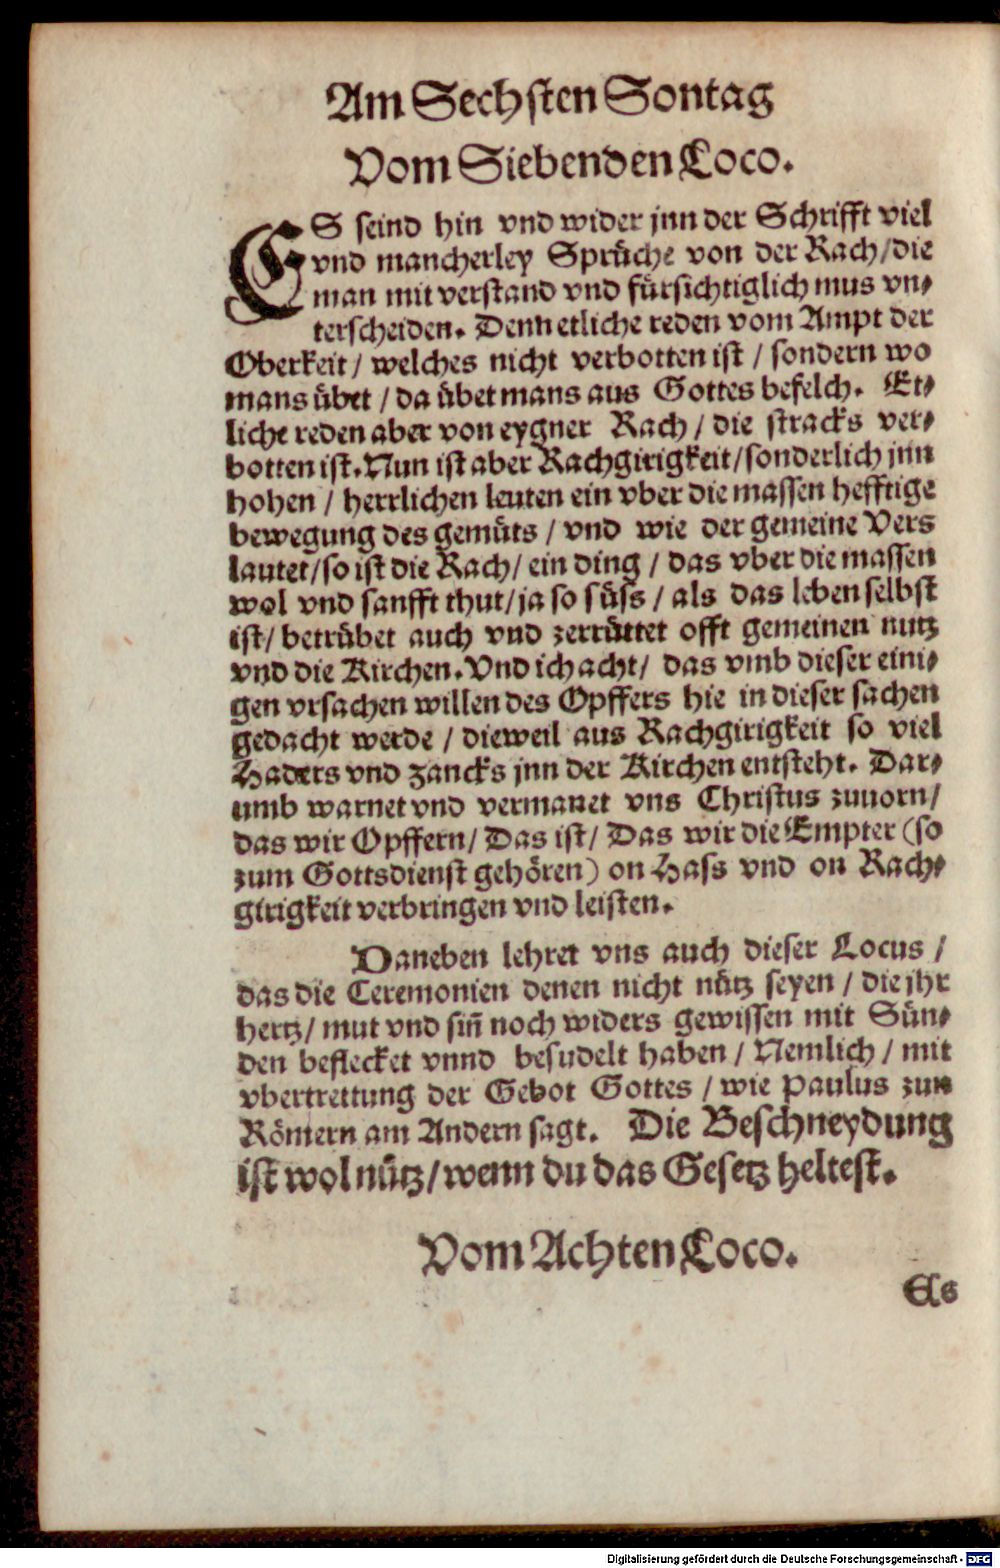 Am Sechsten Sontag
Vom Siebenden Loco.
ES seind hin vnd wider jnn der Schrifft viel
vnd mancherley Sprüche von der Rach/die
man mit verstand vnd fürsichtiglich mus vn⸗
terscheiden. Denn etliche reden vom Ampt der
Oberkeit/ welches nicht verbotten ist / sondern wo
mans übet / da übet mans aus Gottes befelch. Et⸗
liche reden aber von eygner Rach / die stracks ver⸗
botten ist. Nun ist aber Rachgirigkeit/sonderlich jnn
hohen / herrlichen leuten ein vber die massen hefftige
bewegung des gemüts / vnd wie der gemeine Vers
lautet/so ist die Rach/ ein ding / das vber die massen
wol vnd sanfft thut/ja so süss / als das leben selbst
ist/ betrübet auch vnd zerrüttet offt gemeinen nutz
vnd die Kirchen. Vnd ich acht/ das vmb dieser eini⸗
gen vrsachen willen des Opffers hie in dieser sachen
gedacht werde / dieweil aus Rachgirigkeit so viel
Haders vnd zancks jnn der Kirchen entsteht. Dar⸗
umb warnet vnd vermanet vns Christus zuuorn/
das wir Opffern/ Das ist/ Das wir die Empter (so
zum Gottsdienst gehören) on Hass vnd on Rach⸗
girigkeit verbringen vnd leisten.
Daneben lehret vns auch dieser Locus /
das die Ceremonien denen nicht nütz seyen / die jhr
hertz/ mut vnd siñ noch widers gewissen mit Sün⸗
den beflecket vnnd besudelt haben / Nemlich / mit
vbertrettung der Gebot Gottes / wie Paulus zun
Römern am Andern sagt. Die Beschneydung
ist wol nütz/wenn du das Gesetz heltest.
Vom Achten Loco.
Es
Digitalisierung gefördert durch die Deutsche Forschungsgemeinschaft - DFG